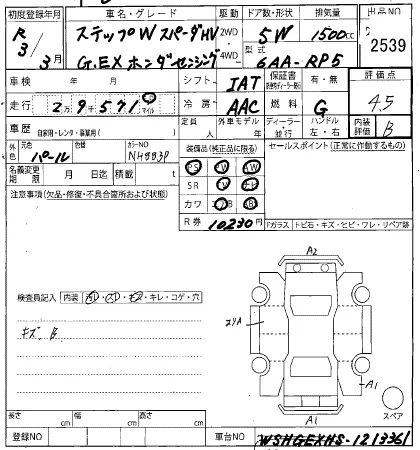 初度登録年月 車名・グレード 駆動 ドア数・形状 排気量 出品NO
R3年 3月 ステップW スパーダHV 2WD 5W 1500cc
G.EX ホンダセンシング 4WD 型式 6AA-RP5 2539
車検 年 月 シフト IAT 保証書 有・無 評価点
走行 2万9千571 マイル 冷房 AAC 燃料 G 4.5
車歴 自家用・レンタ・事業用( ) 定員 人 外車モデル 年 ディーラー・並行 ハンドル 左・右 内装評価 B
外色 元色 パール 色替 カラーNO NH883P 装備品(純正品に限る) セールスポイント(正常に作動するもの)
名義変更期限 月 日迄 積載 t PS AW
注意事項(欠品・修復・不具合箇所および状態) SR
カワ
R券 10,230円
Fガラス トビ石・キズ・ヒビ・ワレ・リペア跡
A2
検査員記入 内装 キレ・コゲ・穴
キズ B
A1
スペア
A1
長さ cm 幅 cm 高さ cm
登録NO 車台NO -1213361